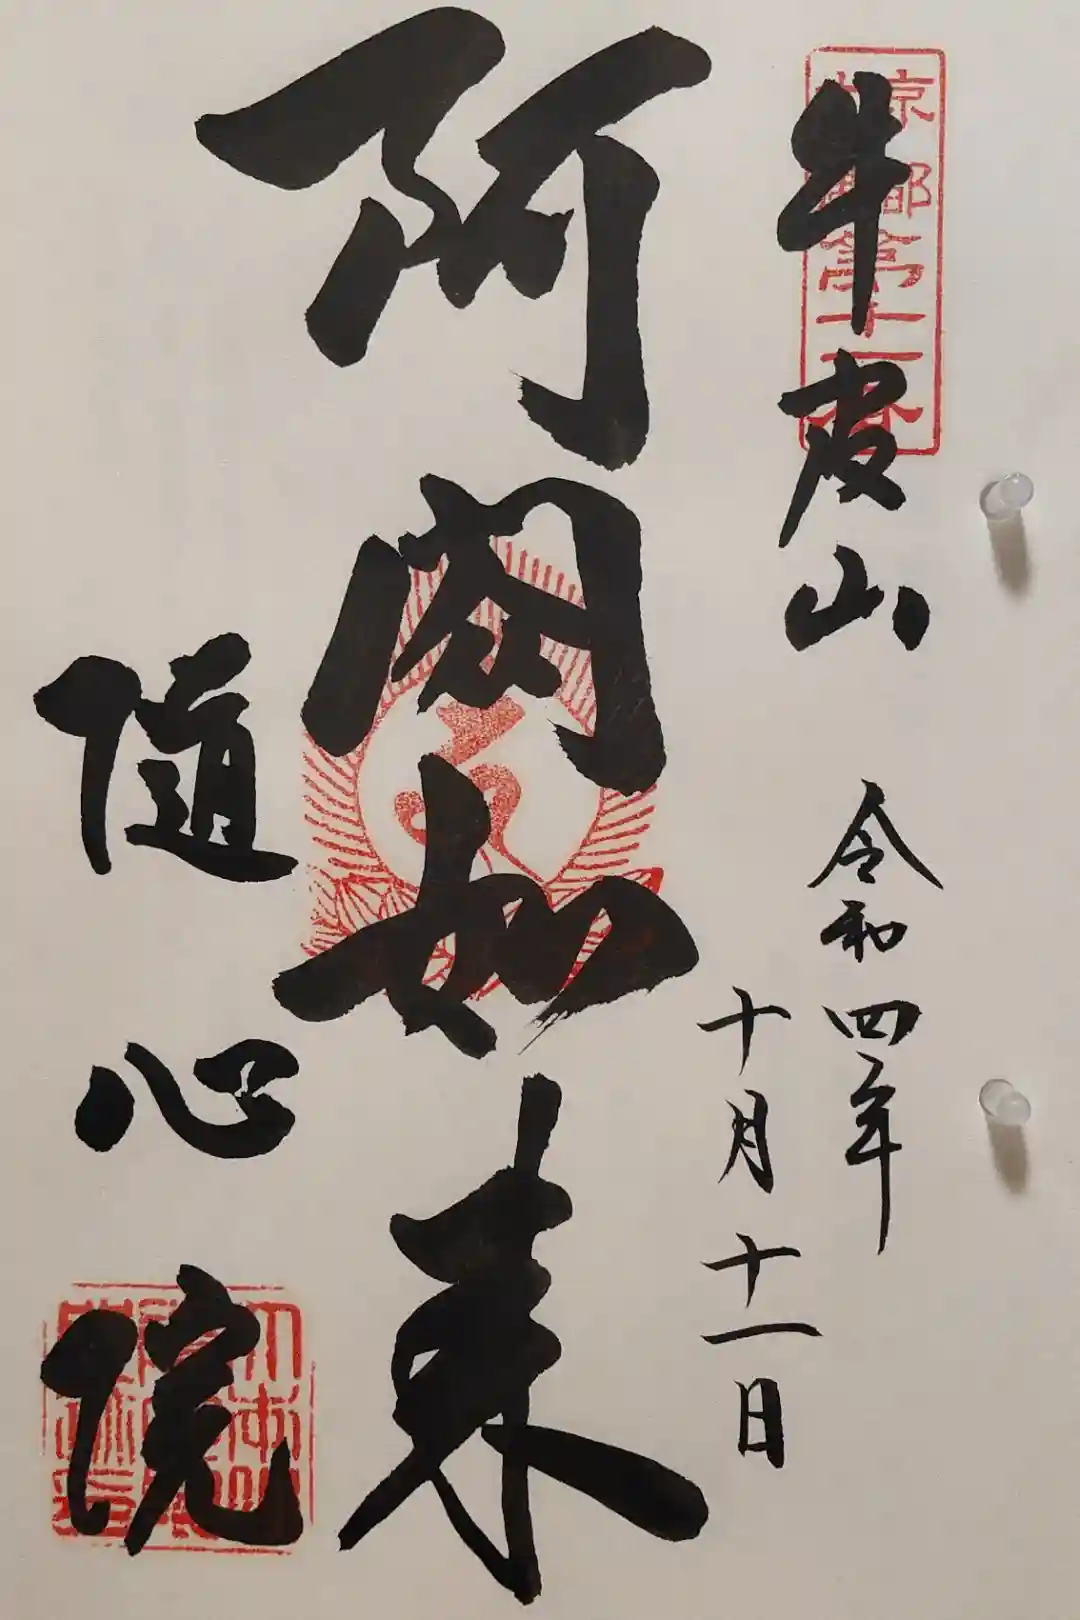 牛皮山
京都第十一番
令和四年
十月十一日
阿閦如来
随心院